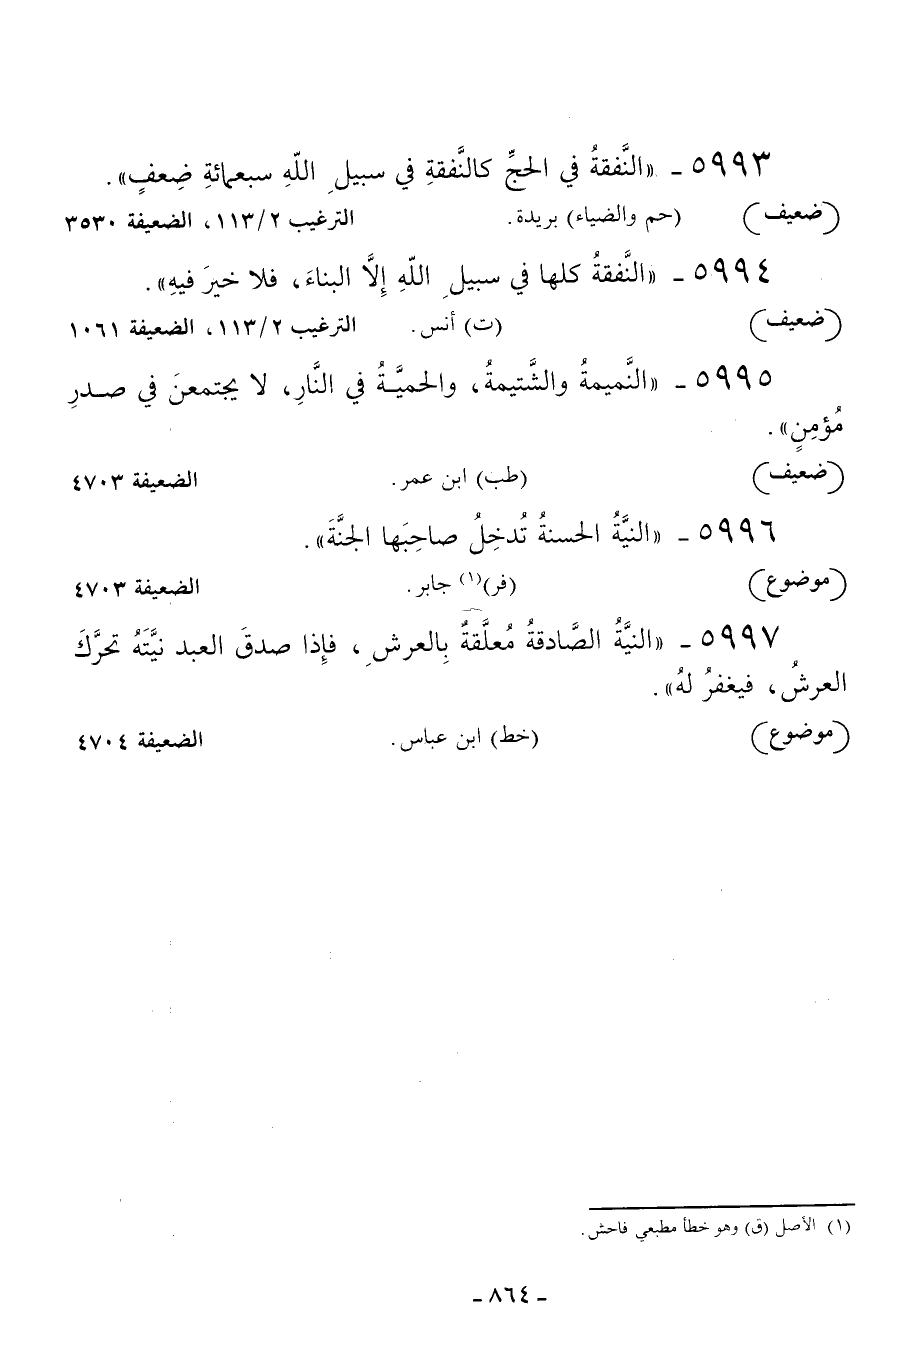 ٥٩٩٣ ـ «النَّفقةُ في الحجِّ كالنَّفقةِ في سبيلِ اللّهِ سبعمائةِ ضِعفٍ».
(ضعيف) (حم والضياء) بريدة. الترغيب ١١٣/٢، الضعيفة ٣٥٣٠
٥٩٩٤ ـ «النَّفقةُ كلها في سبيلِ اللّهِ إِلَّا البناءَ، فلا خيرَ فيهِ».
(ضعيف) (ت) أنس. الترغيب ١١٣/٢، الضعيفة ١٠٦١
٥٩٩٥ ـ «النَّميمةُ والشَّتيمةُ، والحميَّةُ في النَّارِ، لا يجتمعنَ في صدرِ
مُؤمِنٍ».
(ضعيف) (طب) ابن عمر. الضعيفة ٤٧٠٣
٥٩٩٦ ـ «النيَّةُ الحسنةُ تُدخِلُ صاحِبَها الجنَّةَ».
(موضوع) (فر)(١) جابر. الضعيفة ٤٧٠٣
٥٩٩٧ ـ «النيَّةُ الصَّادقةُ مُعلَّقةٌ بِالعرشِ، فإِذا صدقَ العبد نيَّتَهُ تحرَّكَ
العرشُ، فيغفرُ لهُ».
(موضوع) (خط) ابن عباس. الضعيفة ٤٧٠٤
(١) الأصل (ق) وهو خطأ مطبعي فاحش.
ـ ٨٦٤ ـ